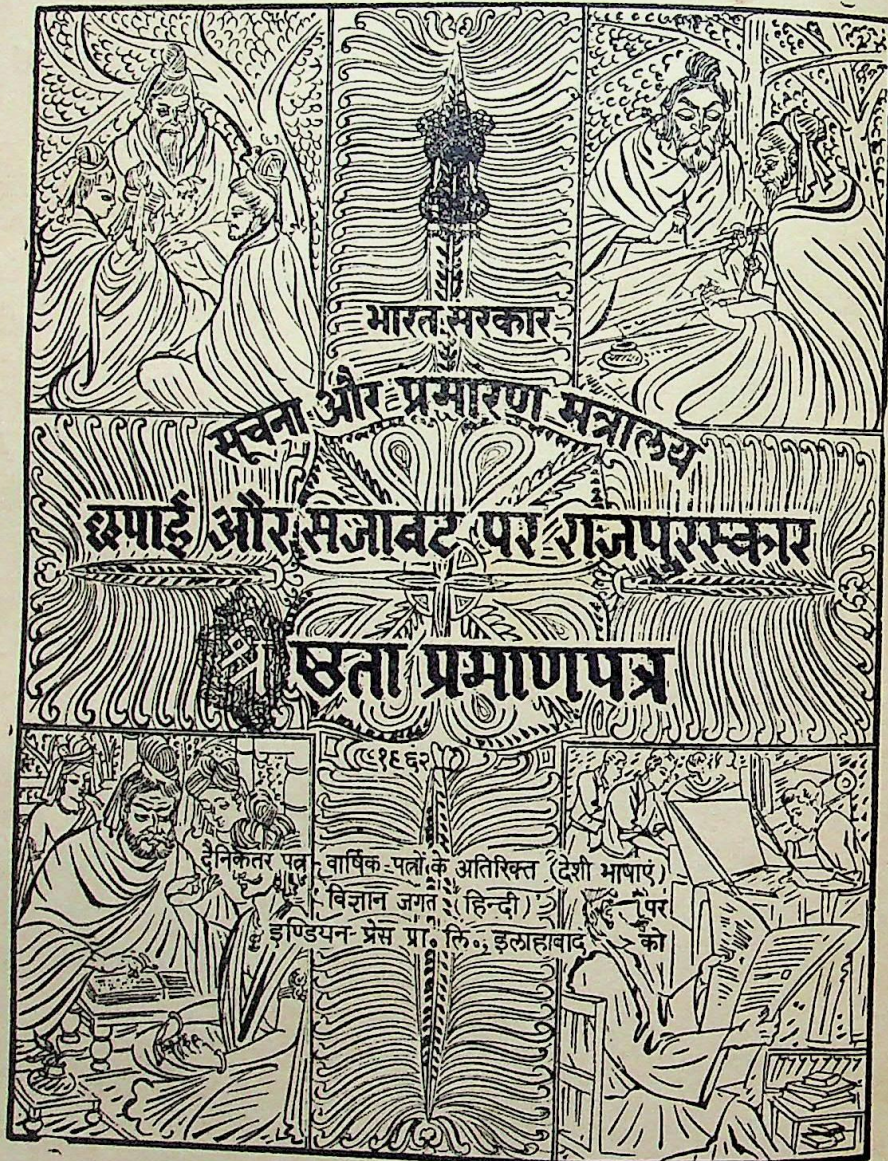 भारत सरकार
सूचना और प्रसारण मंत्रालय
छपाई और सजावट पर राजपुरस्कार
श्रेष्ठता प्रमाणपत्र
१९६२
दैनिकेतर पत्र - वार्षिक-पत्रों के अतिरिक्त (देशी भाषाएं)
विज्ञान जगत (हिन्दी) पर
इण्डियन-प्रेस प्रा॰ लि॰, इलाहाबाद को